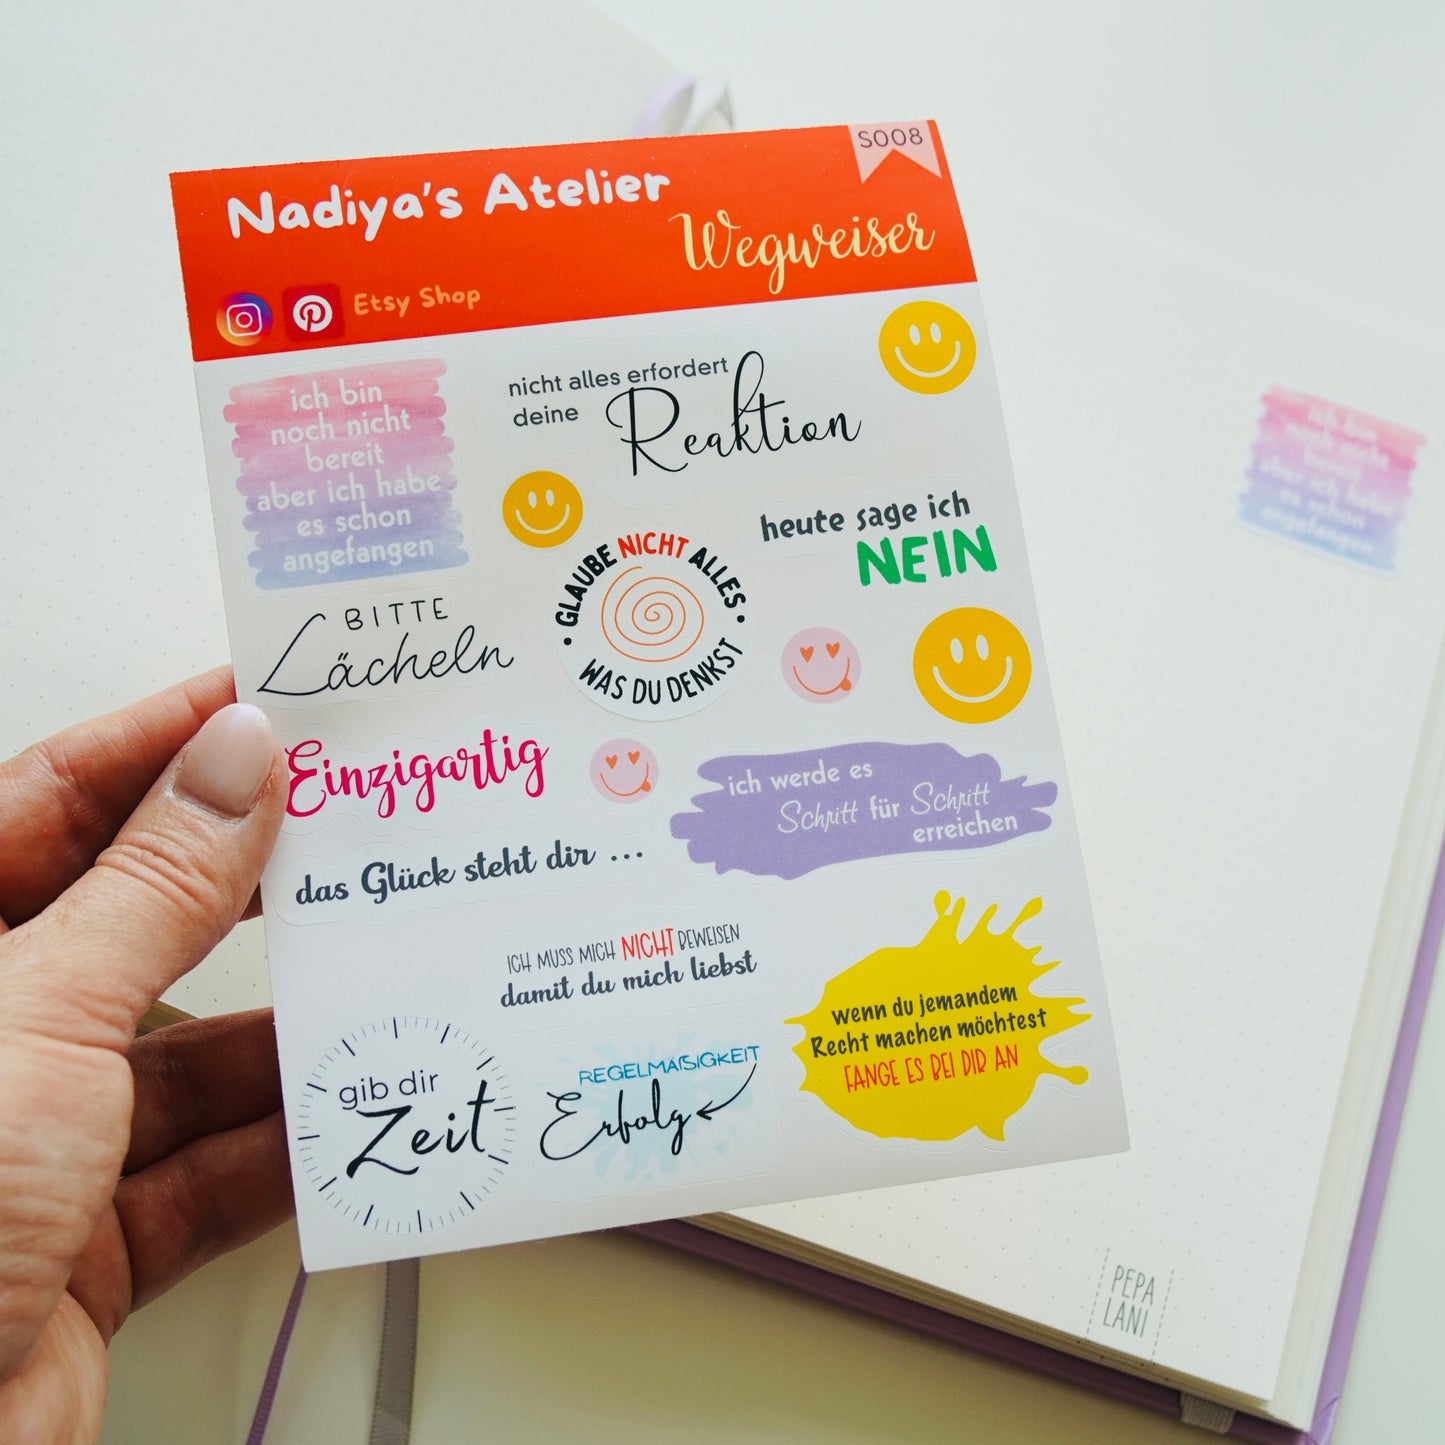 S008
Nadiya's Atelier
Wegweiser
Etsy Shop
ich bin
noch nicht
bereit
aber ich habe
es schon
angefangen
nicht alles erfordert
deine Reaktion
heute sage ich
NEIN
GLAUBE NICHT ALLES
WAS DU DENKST
BITTE
Lächeln
Einzigartig
ich werde es
Schritt für Schritt
erreichen
das Glück steht dir ...
ICH MUSS MICH NICHT BEWEISEN
damit du mich liebst
wenn du jemandem
Recht machen möchtest
FANGE ES BEI DIR AN
gib dir
Zeit
REGELMÄSIGKEIT
Erfolg
ich bin
noch nicht
bereit
aber ich habe
es schon
angefangen
PEPA
LANI